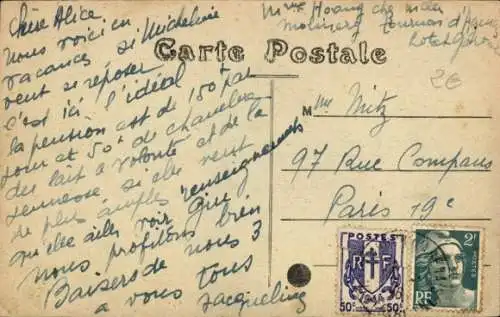 Chère Alice
Nous voici en
vacances si Micheline
veut se reposer
c'est ici l'idéal
la pension est de 150f par
jour et 50f de chambre
du lait à volonté et de la
jeunesse si elle veut
de plus amples renseignements
qu'elle aille voir
nous profitons bien
Baisers de nous 3
a vous tous
Jacqueline
Mme Hoang chez
Carte Postale
2€
Mme Mitz
97 Rue Compans
Paris 19e
POSTES
RF
50c 50c
2F
POSTES
RF